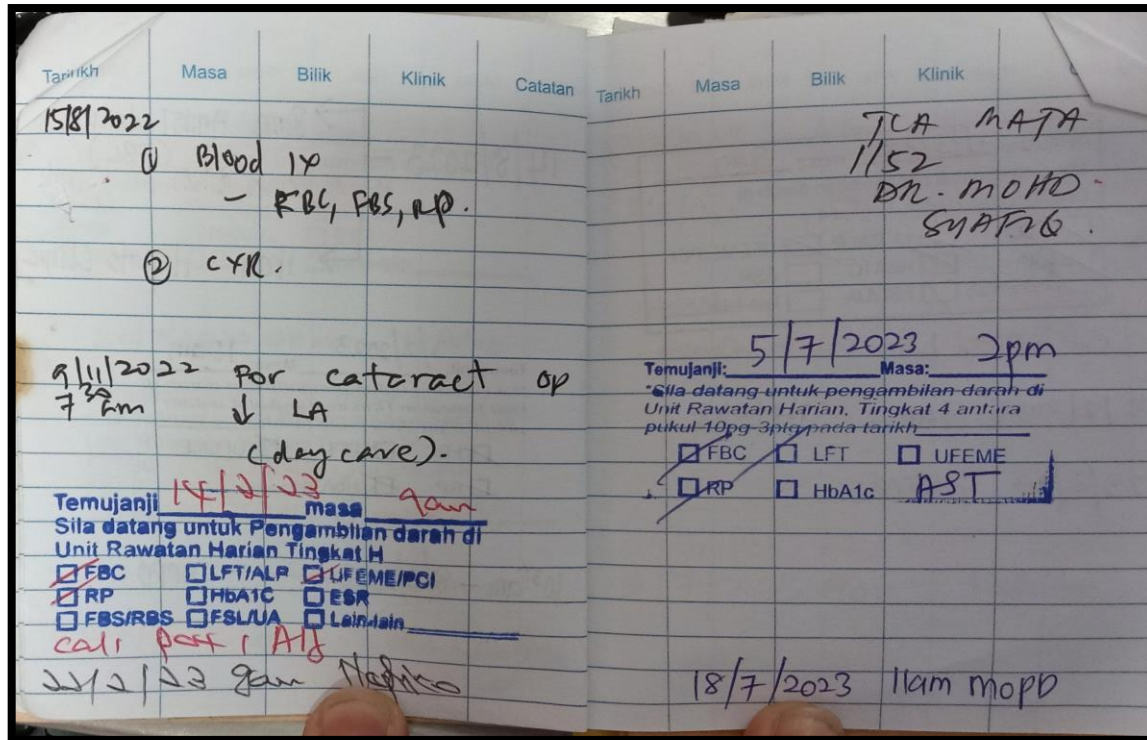 Tarikh Masa Bilik Klinik Catatan
15/8/2022
① Blood Ix
- FBC, FBS, RP.
② CXR.
9/11/2022 For cataract op
7 30 am ↓ LA
(day care).
Temujanji 14/2/23 masa 9am
Sila datang untuk Pengambilan darah di
Unit Rawatan Harian Tingkat H
FBC LFT/ALP UFEME/PCI
RP HbA1C ESR
FBS/RBS FSL/UA Lain-lain
22/2/23 9am Nefro
Tarikh Masa Bilik Klinik
TCA MATA
1/52
DR. MOHD
SYAFIQ.
5/7/2023 2pm
Temujanji: Masa:
*Sila datang untuk pengambilan darah di
Unit Rawatan Harian, Tingkat 4 antara
pukul 10pg-3ptg pada tarikh
FBC LFT UFEME
RP HbA1c AST
18/7/2023 11am MOPD